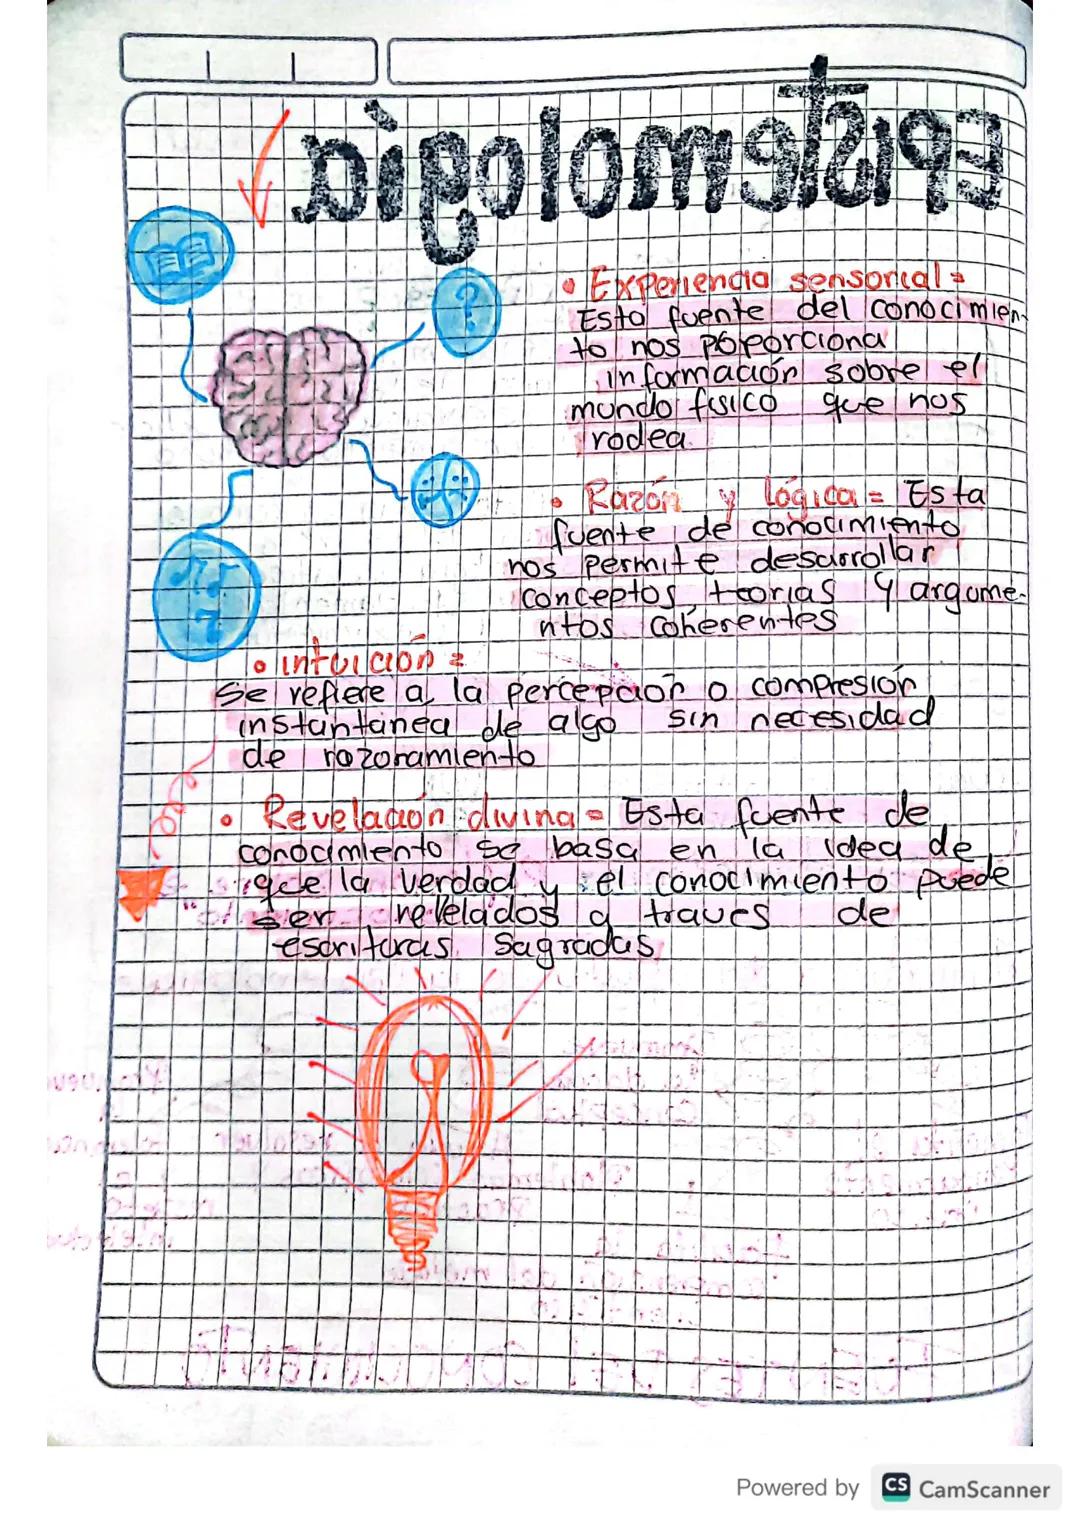 Epistemología
• Experiencia sensorial =
Esta fuente del conocimien-
to nos poporciona
información sobre el
mundo fisico que nos
rodea.
• Razón y lógica = Esta
fuente de conocimiento
nos permite desarrollar
conceptos, teorias y argume-
ntos coherentes
• intuición =
Se refiere a la percepción o compresión
instantanea de algo sin necesidad
de razonamiento
• Revelación divina = Esta fuente de
conocimiento se basa en la idea de
que la verdad y el conocimiento puede
ser revelados a traves de
escrituras sagradas
Powered by CS CamScanner